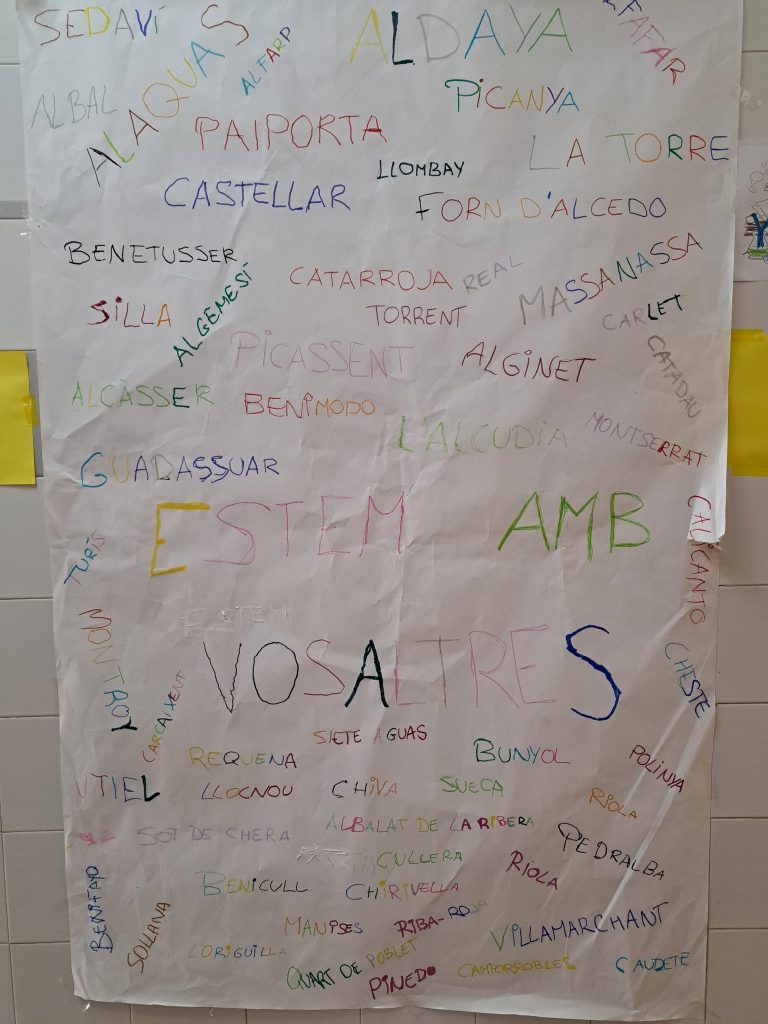 SEDAVÍ
ALDAYA
ALFAFAR
ALBAL
ALAQUAS
ALFARP
PICANYA
PAIPORTA
LA TORRE
LLOMBAY
CASTELLAR
FORN D'ALCEDO
BENETUSSER
CATARROJA
REAL
MASSANASSA
SILLA
ALGEMESÍ
TORRENT
CARLET
PICASSENT
ALGINET
CATADAU
ALCÀSSER
BENIMODO
L'ALCUDIA
MONTSERRAT
GUADASSUAR
ESTEM AMB
CALICANTO
TURÍS
VOSALTRES
MONTROY
CARCAIXENT
CHESTE
SIETE AGUAS
REQUENA
BUNYOL
POLINYA
UTIEL
LLOCNOU
CHIVA
SUECA
RIOLA
SOT DE CHERA
ALBALAT DE LA RIBERA
PEDRALBA
CULLERA
RIOLA
BENIFAYO
BENICULL
CHIRIVELLA
SOLLANA
MANISES
RIBA-ROJA
VILLAMARCHANT
L'ORIGUILLA
QUART DE POBLET
PINEDO
CAMPORROBLES
CAUDETE